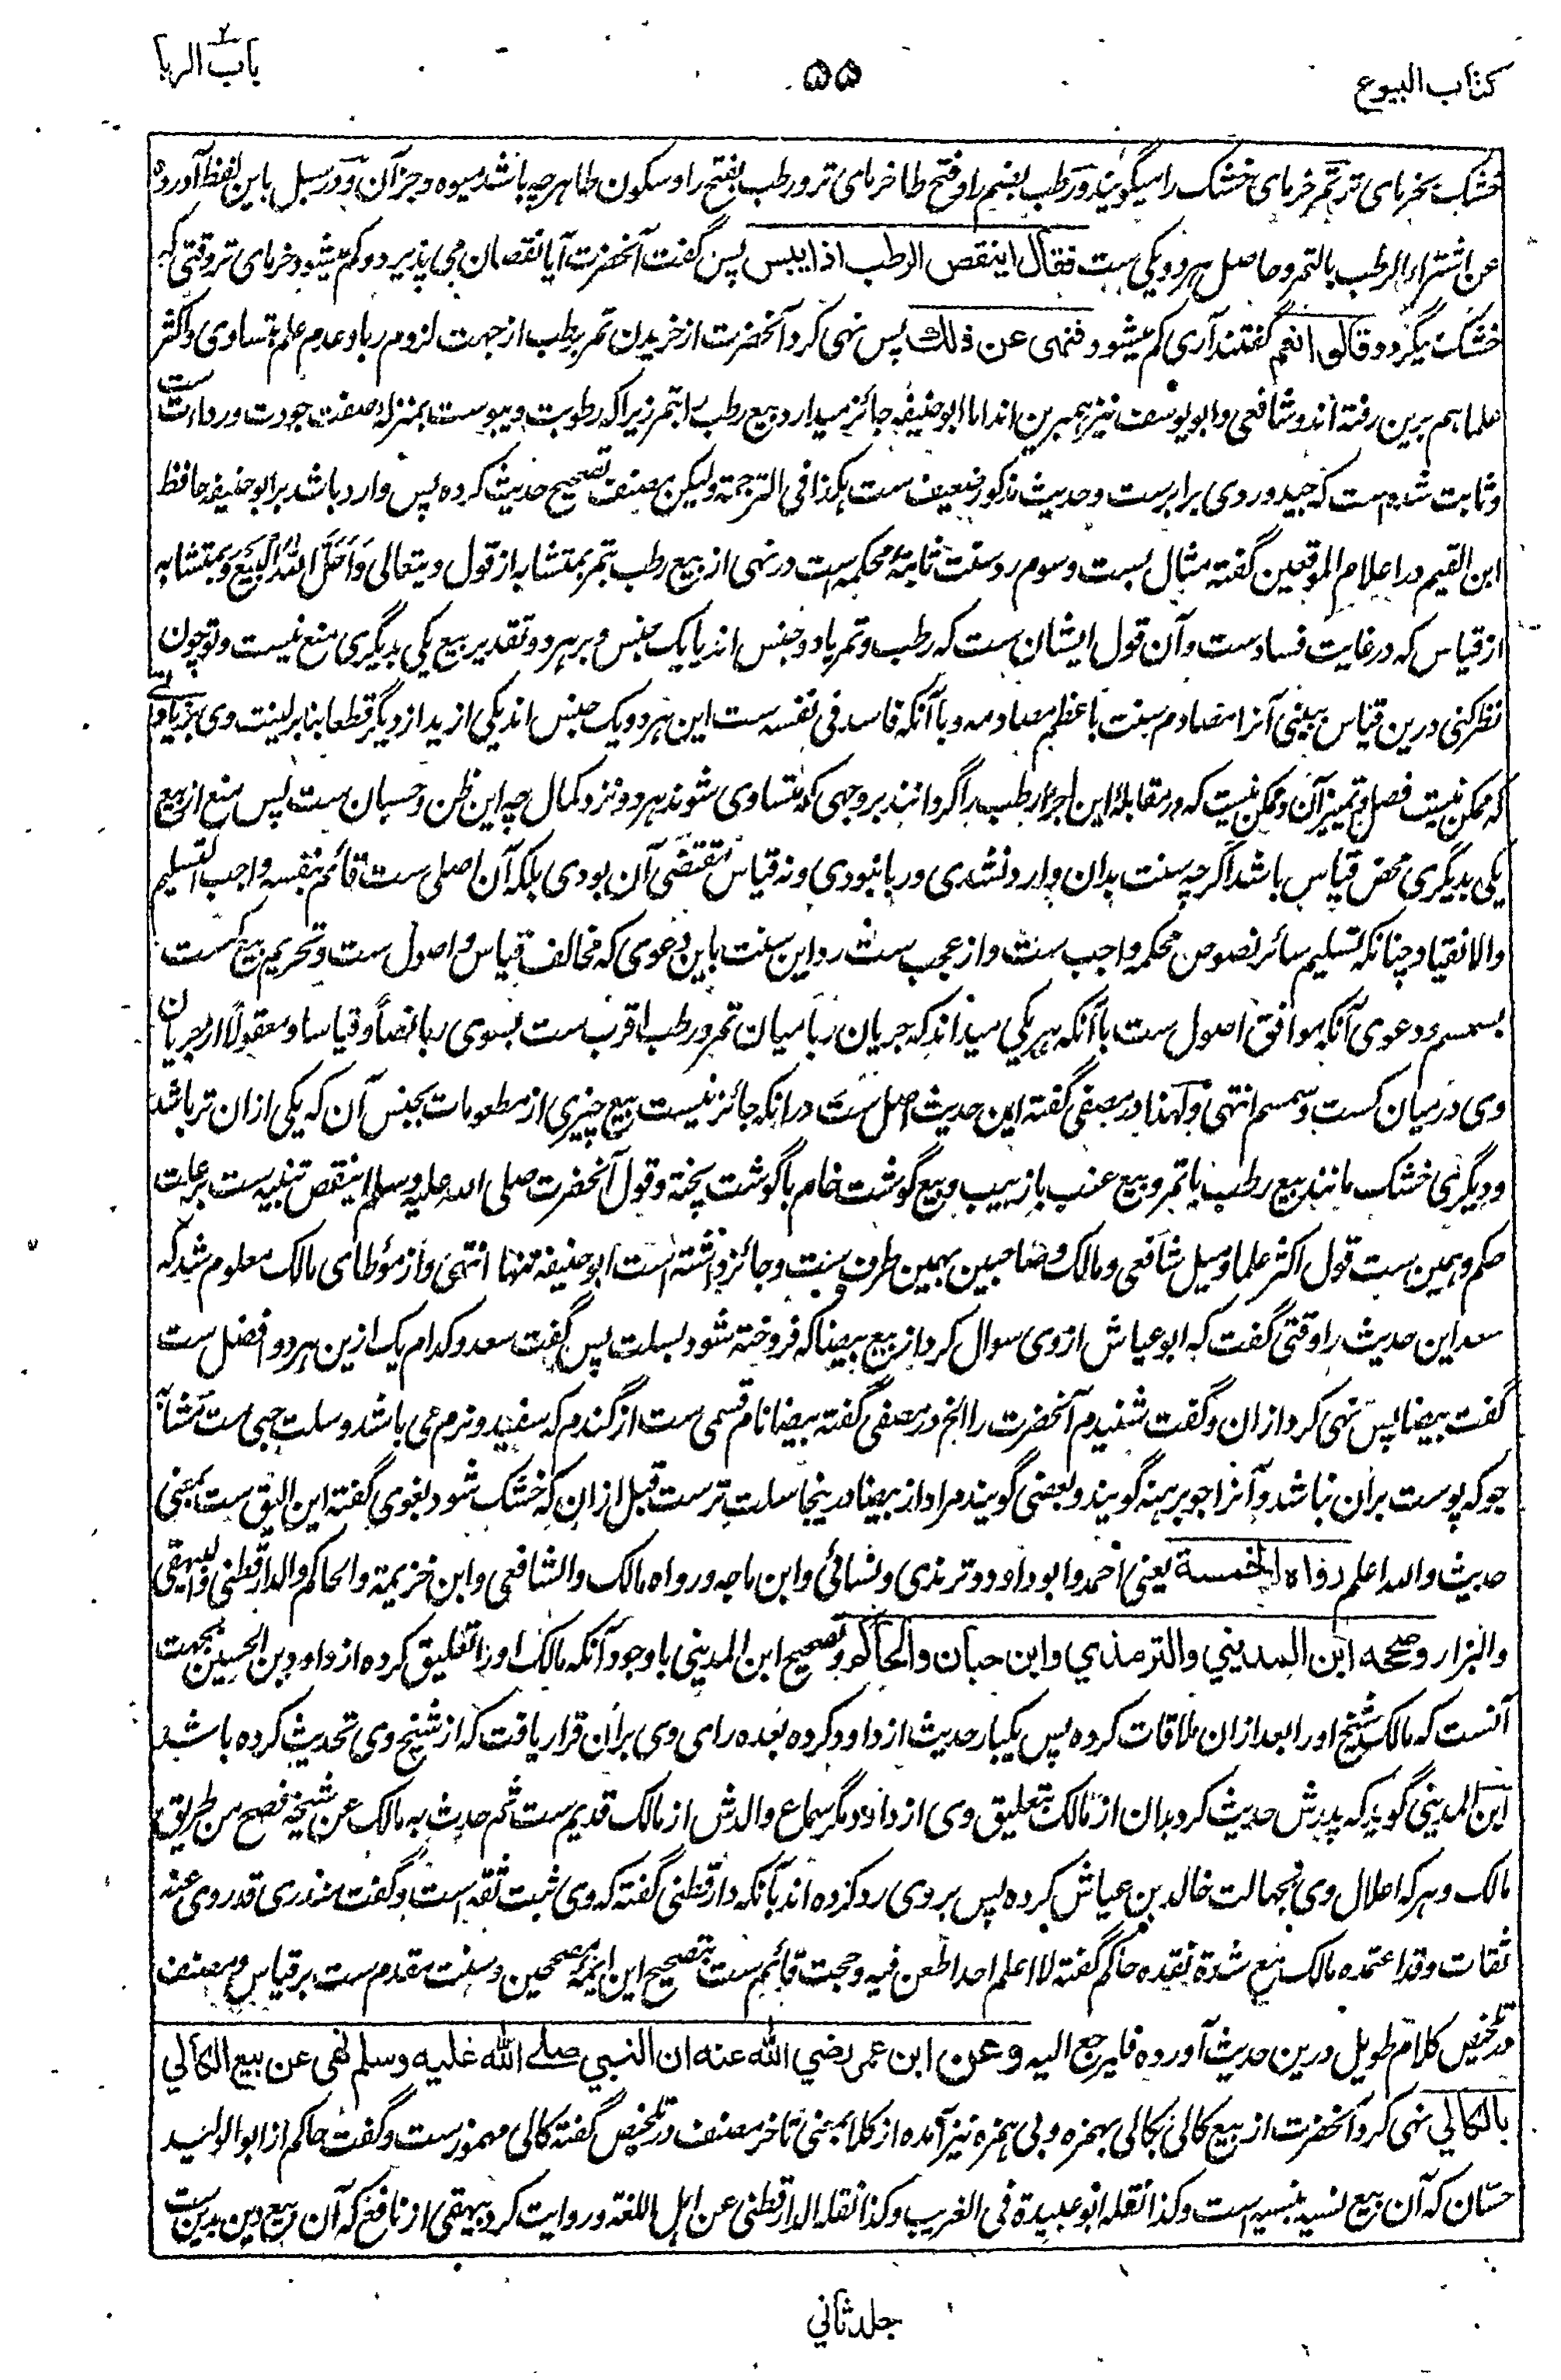 کتاب البیوع
۵۵
باب الربا
خشک بخرمای تر تمر خرمای خشک را میگویند و رطب بضم را و فتح طا خرمای تر و رطب بفتح را و سکون طا هر چه باشد میوه و جز آن و در سبل باین لفظ آورده
عن اشتراء الرطب بالتمر و حاصل هر دو یکی ست فقال اینقص الرطب اذا ییبس پس گفت آنحضرت آیا نقصان می پذیرد و کم میشود خرمای تر وقتی که
خشک میگردد قالوا نعم گفتند آری کم میشود فنهی عن ذلك پس نهی کرد آنحضرت از خریدن تمر برطب از جهت لزوم ربا و عدم علم بتساوی و اکثر
علما هم برین رفته اند و شافعی و ابو یوسف نیز همبرین اند اما ابو حنیفه جائز میدارد بیع رطب را بتمر زیرا که رطوبت و یبوست بمنزله صفت جودت و رداءت ست
و ثابت شده ست که جید و ردی برابر ست و حدیث مذکور ضعیف ست هکذا فی الترجمة و لیکن مصنف تصحیح حدیث کرده پس وارد باشد بر ابو حنیفه حافظ
ابن القیم در اعلام الموقعین گفته مثال بست و سوم رد سنت ثابتهٔ محکمه ست در نهی از بیع رطب بتمر بمتشابه از قول و یتعالی وَاَحَلَّ اللهُ الْبَيْعَ و بمتشابه
از قیاس که در غایت فساد ست و آن قول ایشان ست که رطب و تمر یا دو جنس اند یا یک جنس و بر هر دو تقدیر بیع یکی بدیگری منع نیست و تو چون
نظر کنی درین قیاس ببینی آنرا مصادم سنت باعظم مصادمه و با آنکه فاسد فی نفسه ست این هر دو یک جنس اند یکی ازید از دیگر قطعا بنا بر لینت وی بزیادتی
که ممکن نیست فصل و تمییز آن و ممکن نیست که در مقابلهٔ این اجزاء رطب را گردانند بر وجهی که متساوی شوند هر دو نزد کمال چه این ظن و حسبان ست پس منع از بیع
یکی بدیگری محض قیاس باشد اگر چه سنت بدان وارد نشدی و ربا نبودی و نه قیاس مقتضی آن بودی بلکه آن اصلی ست قائم بنفسه واجب التسلیم
والانقیاد چنانکه تسلیم سائر نصوص محکمه واجب ست و از عجب ست رد این سنت باین دعوی که مخالف قیاس و اصول ست و تحریم بیع کسب
بسمسم و دعوی آنکه موافق اصول ست با آنکه هر یکی میداند که جریان ربا میان تمر و رطب اقرب ست بسوی ربا نصاً و قیاسا و معقولاً از جریان
وی در میان کسب و سمسم انتهی و لهذا در مصفی گفته این حدیث اصل ست در آنکه جائز نیست بیع چیزی از مطعومات بجنس آن که یکی ازان تر باشد
و دیگری خشک مانند بیع رطب با تمر و بیع عنب با زبیب و بیع گوشت خام با گوشت پخته و قول آنحضرت صلی الله علیه وسلم اینقص تنبیه ست بر علت
حکم و همین ست قول اکثر علما و میل شافعی و مالک و صاحبین بهمین طرف ست و جائز داشته است ابو حنیفه تنها انتهی و از مؤطای مالک معلوم شد که
سعد این حدیث را وقتی گفت که ابو عیاش از وی سوال کرد از بیع بیضا که فروخته شود بسلت پس گفت سعد و کدام یک ازین هر دو افضل ست
گفت بیضا پس نهی کرد ازان و گفت شنیدم آنحضرت را الخ در مصفی گفته بیضا نام قسمی ست از گندم که سفید و نرم می باشد و سلت حبی ست مشابه
جو که پوست بران نباشد و آنرا جو برهنه گویند و بعضی گویند مراد از بیضا درینجا سلت تر ست قبل ازان که خشک شود بغوی گفته این الیق ست بمعنی
حدیث والله اعلم رواه الخمسة یعنی احمد و ابو داود و ترمذی و نسائی و ابن ماجه و رواه مالک والشافعی و ابن خزیمة والحاکم والدارقطنی والبیهقی
والبزار وصححه ابن المديني والترمذي وابن حبان والحاكم و تصحیح ابن المدینی با وجود آنکه مالک او را تعلیق کرده از داود بن الحسین بجهت
آنست که مالک شیخ او را بعد ازان ملاقات کرده پس یکبار حدیث از داود کرده بعده رای وی بران قرار یافت که از شیخ وی تحدیث کرده باشد
ابن المدینی گوید که پدرش حدیث کرد بدان از مالک بتعلیق وی از داود مگر سماع والدش از مالک قدیم ست ثم حدث به مالک عن شیخه فصح من طریق
مالک و هر که اعلال وی بجهالت خالد بن عیاش کرده پس بر وی رد کرده اند بآنکه دارقطنی گفته که وی ثبت ثقه است و گفت منذری قد روی عنه
ثقات و قد اعتمده مالک مع شدة نقده حاکم گفته لا اعلم احدا طعن فیه و حجت قائم ست بتصحیح این ایمهٔ مصححین و سنت مقدم ست بر قیاس و مصنف
در تلخیص کلام طویل درین حدیث آورده فلیرجع الیه وعن ابن عمر رضي الله عنه ان النبي صلے الله علیه وسلم نهى عن بيع الكالي
بالكالي نهی کرد آنحضرت از بیع کالی بکالی بهمزه و بی همزه نیز آمده از کلا بمعنی تاخر مصنف در تلخیص گفته کالی مهموز ست و گفت حاکم از ابو الولید
حسّان که آن بیع نسیه بنسیه است و کذا نقله ابو عبیدة فی الغریب و کذا نقله الدارقطنی عن اهل اللغة و روایت کرد بیهقی از نافع که آن بیع دین بدین ست
جلد ثاني